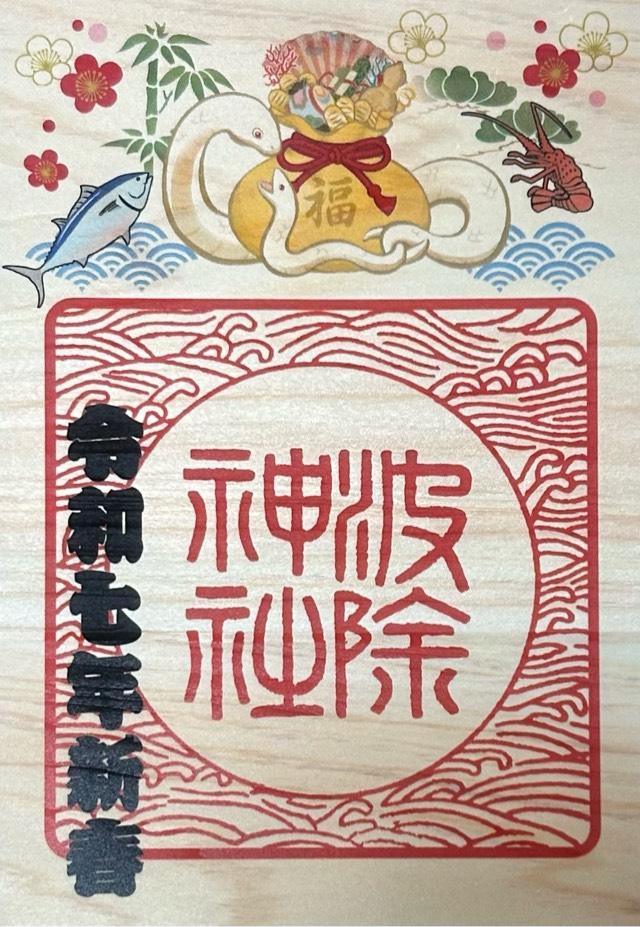 福
波除
神社
令和七年新春